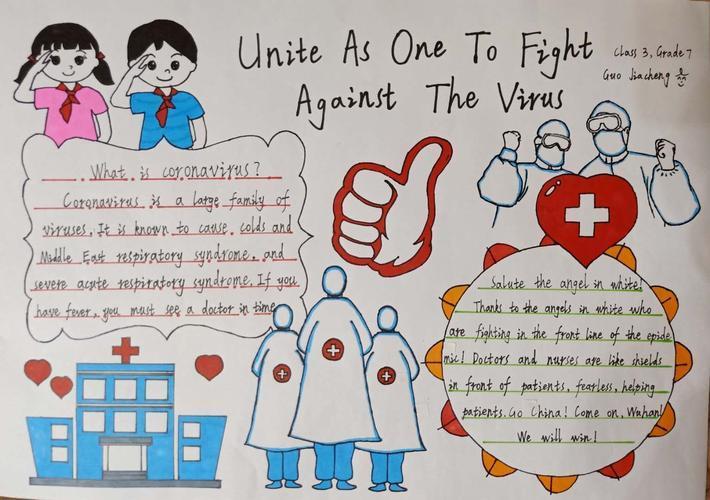 Unite As One To Fight
Against The Virus
Class 3, Grade 7
Guo Jiacheng
What is coronavirus?
Coronavirus is a large family of
viruses. It is known to cause colds and
Middle East respiratory syndrome. and
severe acute respiratory syndrome. If you
have fever, you must see a doctor in time
Salute the angel in white!
Thanks to the angels in white who
are fighting in the front line of the epide
mic! Doctors and nurses are like shields
in front of patients, fearless, helping
patients. Go China! Come on, Wuhan!
We will win!